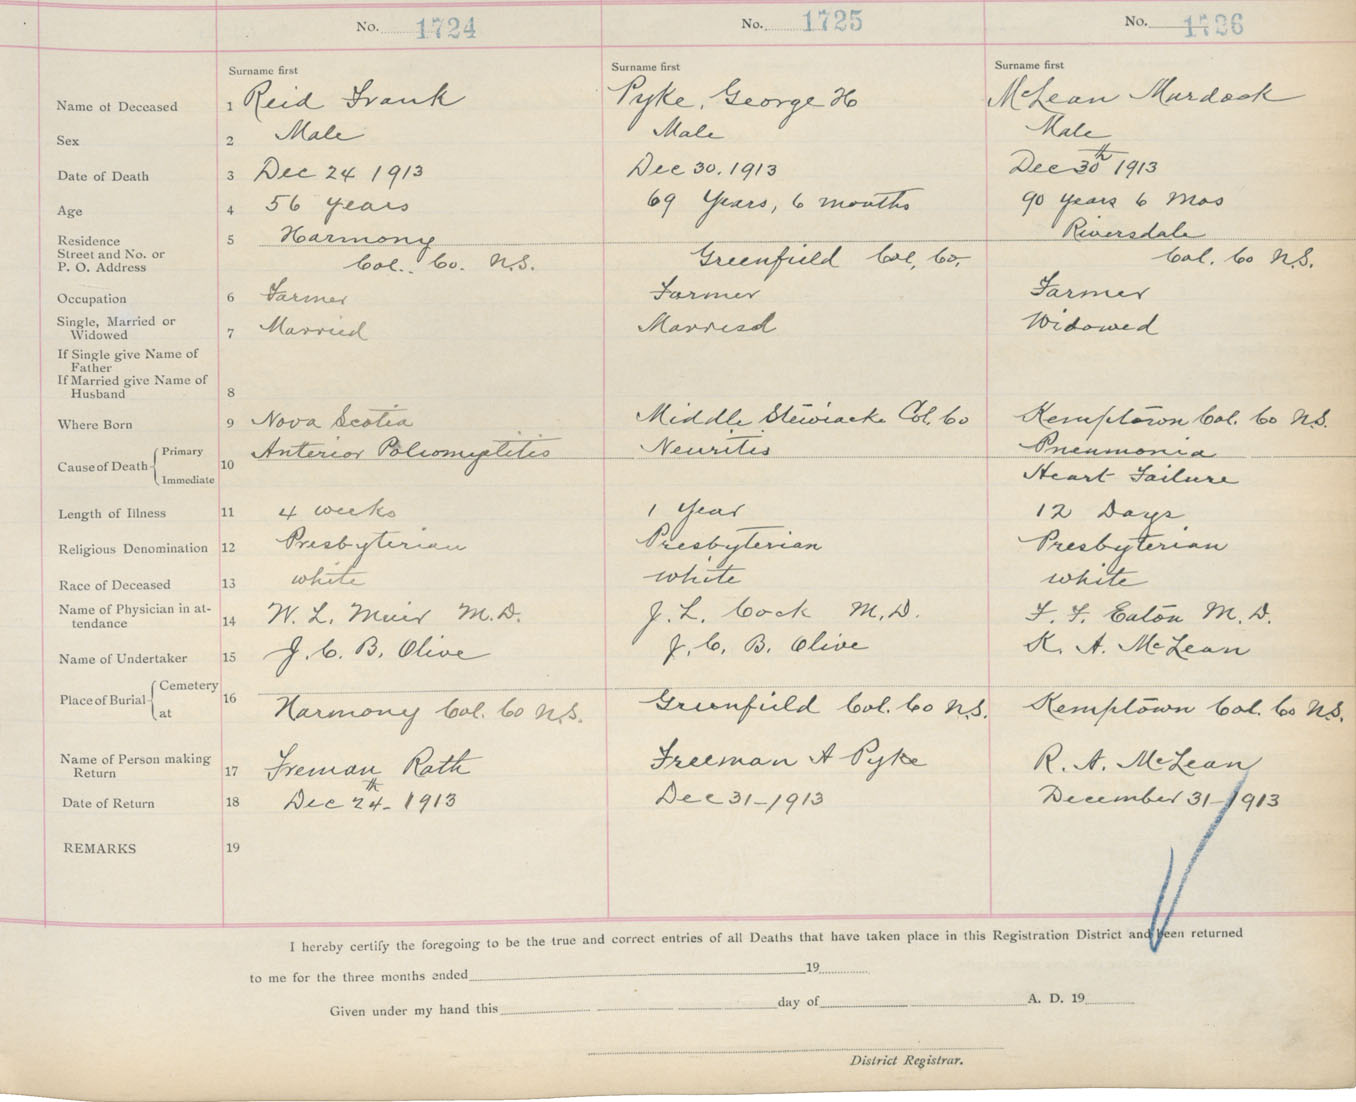 No. 1724 No. 1725 No. 1726
Surname first Surname first Surname first
Name of Deceased 1 Reid Frank Pyke, George H McLean Murdock
Sex 2 Male Male Male
Date of Death 3 Dec 24 1913 Dec 30. 1913 Dec 30th 1913
Age 4 56 years 69 Years, 6 months 90 years 6 Mos
Residence 5 Harmony Riversdale
Street and No. or
P. O. Address Col. Co. N.S. Greenfield Col. Co. Col. Co N.S.
Occupation 6 Farmer Farmer Farmer
Single, Married or
Widowed 7 Married Married Widowed
If Single give Name of
Father
If Married give Name of
Husband 8
Where Born 9 Nova Scotia Middle Stewiacke Col. Co Kemptown Col. Co N.S.
Cause of Death Primary 10 Anterior Poliomyelitis Neuritis Pneumonia
Immediate Heart Failure
Length of Illness 11 4 weeks 1 Year 12 Days
Religious Denomination 12 Presbyterian Presbyterian Presbyterian
Race of Deceased 13 white white white
Name of Physician in at-
tendance 14 W. L. Muir M.D. J. L. Cock M.D. F. F. Eaton M.D.
Name of Undertaker 15 J. C. B. Olive J. C. B. Olive K. A. McLean
Place of Burial Cemetery 16
at Harmony Col. Co N.S. Greenfield Col. Co N.S. Kemptown Col. Co N.S.
Name of Person making
Return 17 Freman Rath Freeman A Pyke R. A. McLean
Date of Return 18 Dec 24th- 1913 Dec 31-1913 December 31-1913
REMARKS 19
I hereby certify the foregoing to be the true and correct entries of all Deaths that have taken place in this Registration District and been returned
to me for the three months ended 19
Given under my hand this day of A. D. 19
District Registrar.